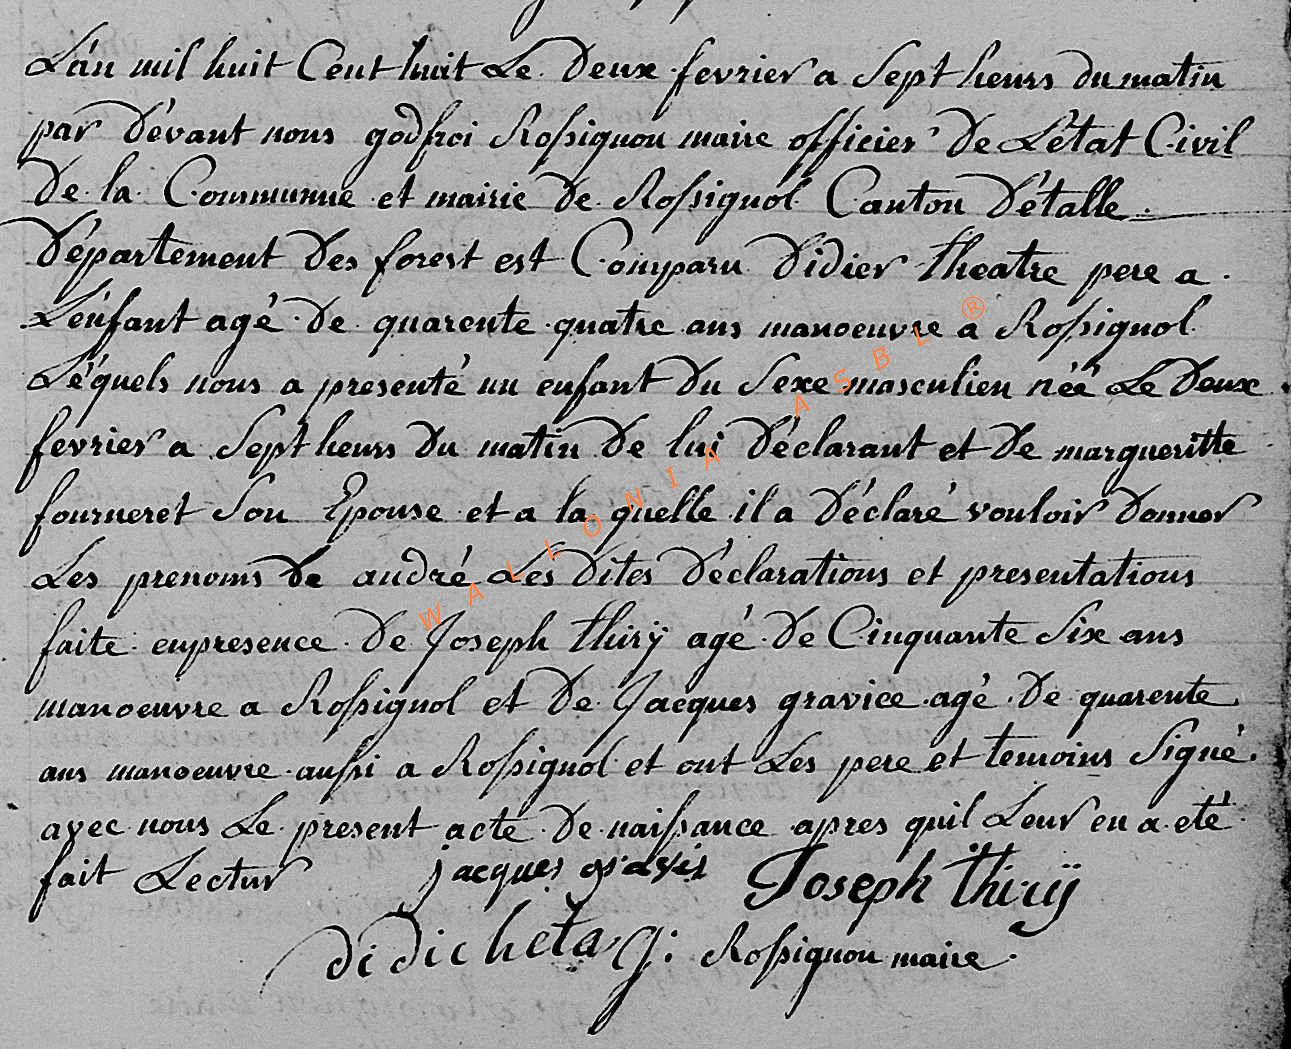 L'an mil huit Cent huit Le Deux fevrier a Sept heurs du matin
par Dévant nous godfroi Rossignon maire officier De L'état Civil
De la Communne et mairie De Rossignol Canton D'étalle
Département Des forest est Comparu Didier theatre pere a
L'énfant agé De quarente quatre ans manoeuvre a Rossignol
Léquels nous a presenté un enfant Du Sexe masculien néé Le Deux
fevrier a Sept heurs Du matin De lui Déclarant et De margueritte
fourneret Son Epouse et a la quelle il a Déclaré vouloir Donner
Les prenoms De andré Les Dites Déclarations et presentations
faite enpresence De Joseph thirÿ agé De Cinquante Six ans
manoeuvre a Rossignol et De Jacques gravice agé De quarente
ans manoeuvre aussi a Rossignol et ont Les pere et temoins Signé
avec nous Le present acte De naissance apres quil Leur en a eté
fait Lectur jacques gravis Joseph thirÿ
G: Rossignon maire
WALLONIA ASBL ®